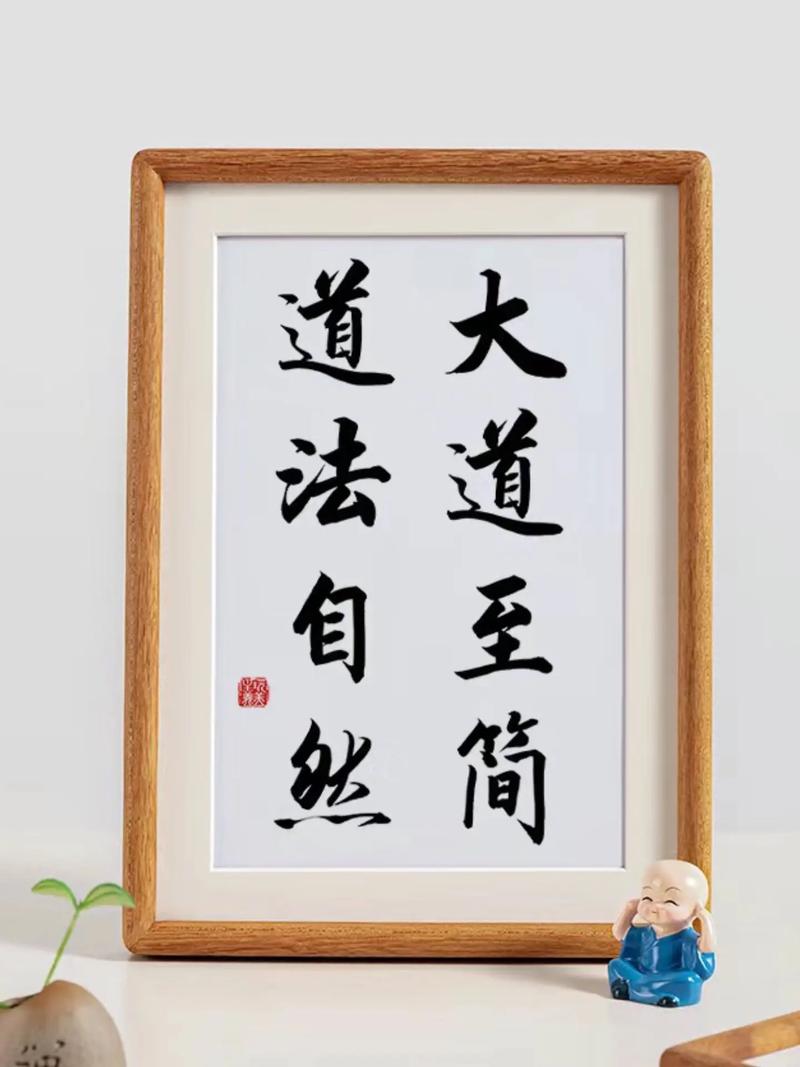 大道至简
道法自然